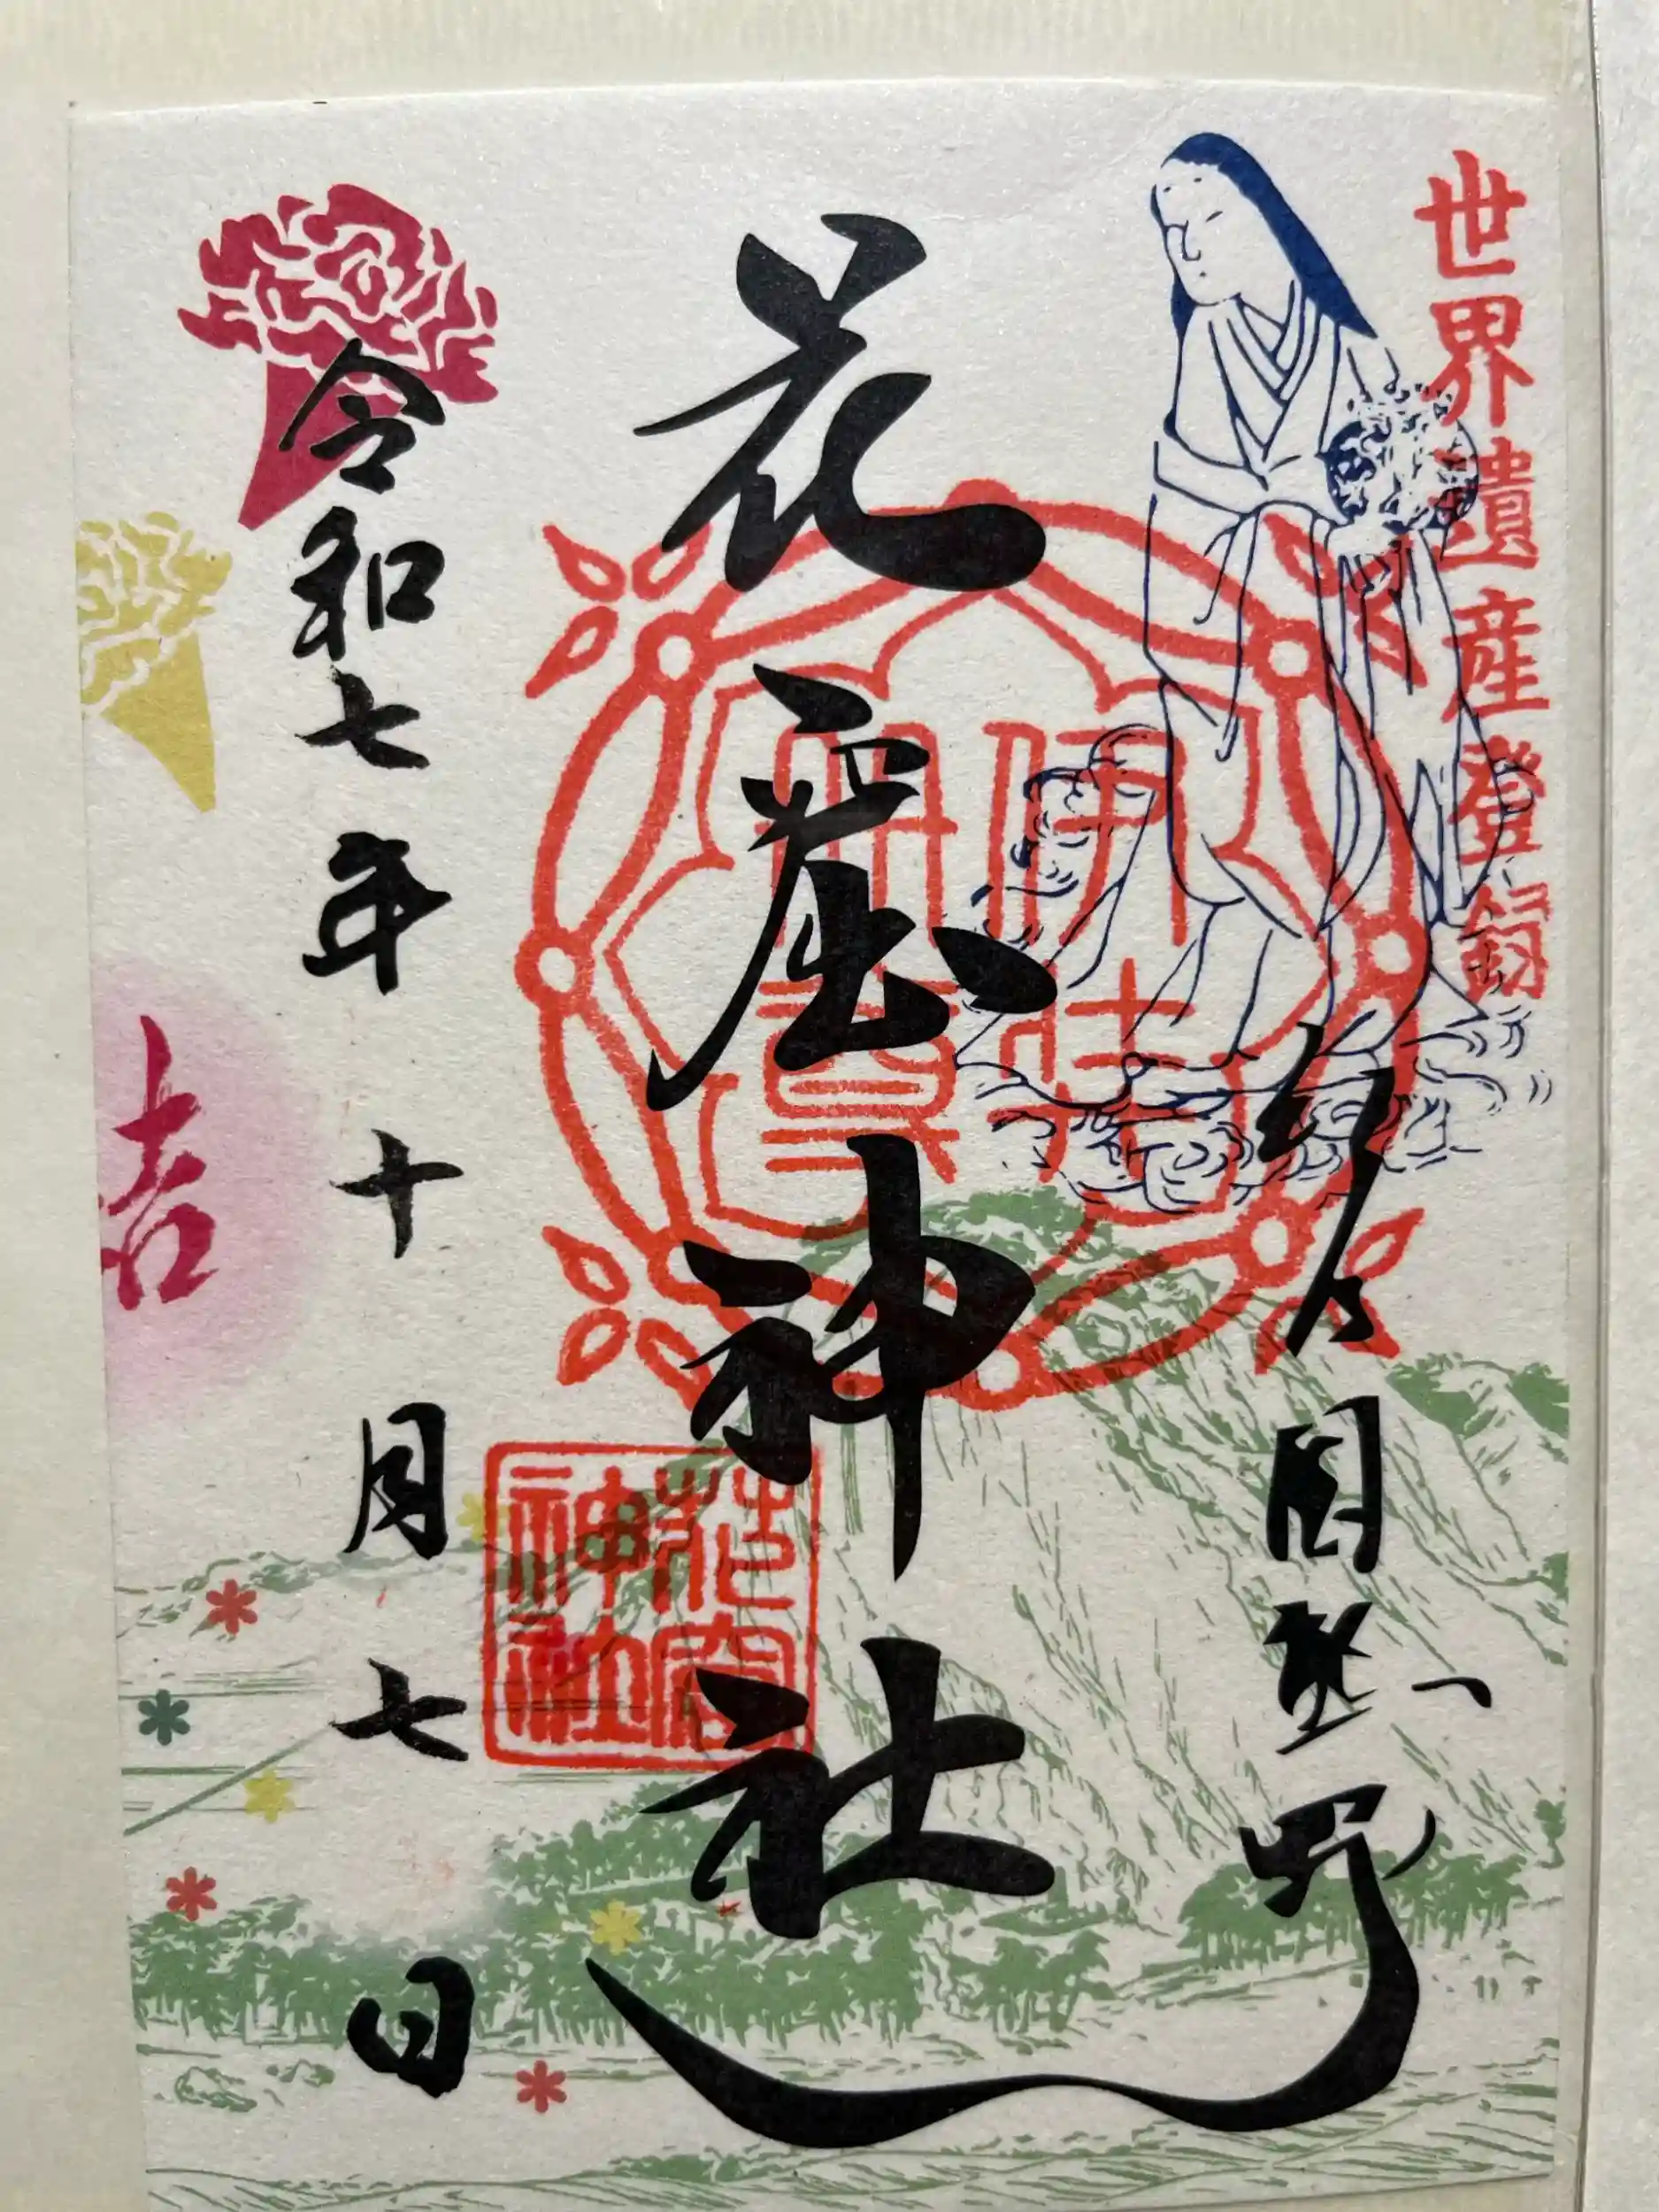 世界遺産登録
紀伊国熊野
花窟神社
伊弉
冊尊
花窟
神社
令和七年十月七日
吉